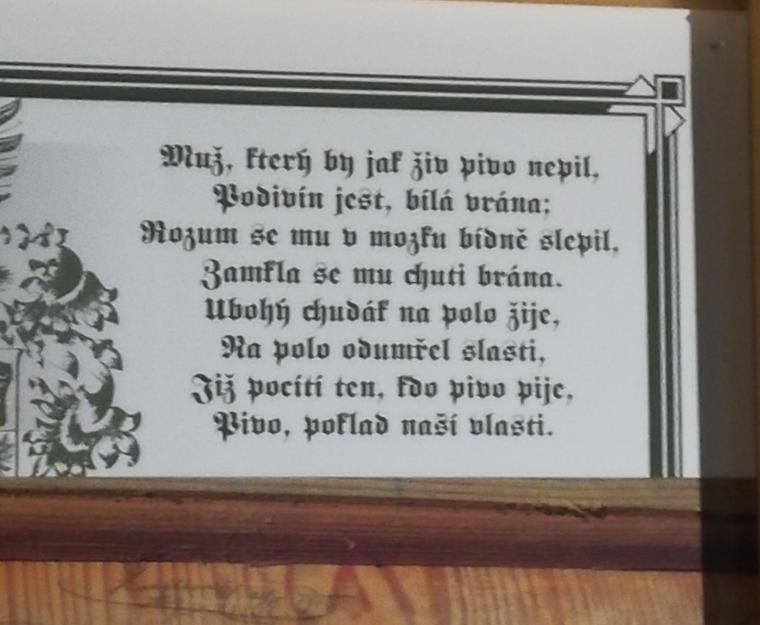 Muž, který by jak živ pivo nepil,
Podivín jest, bílá vrána;
Rozum se mu v mozku bídně slepil,
Zamkla se mu chuti brána.
Ubohý chudák na polo žije,
Na polo odumřel slasti,
Již pocítí ten, kdo pivo pije,
Pivo, poklad naší vlasti.